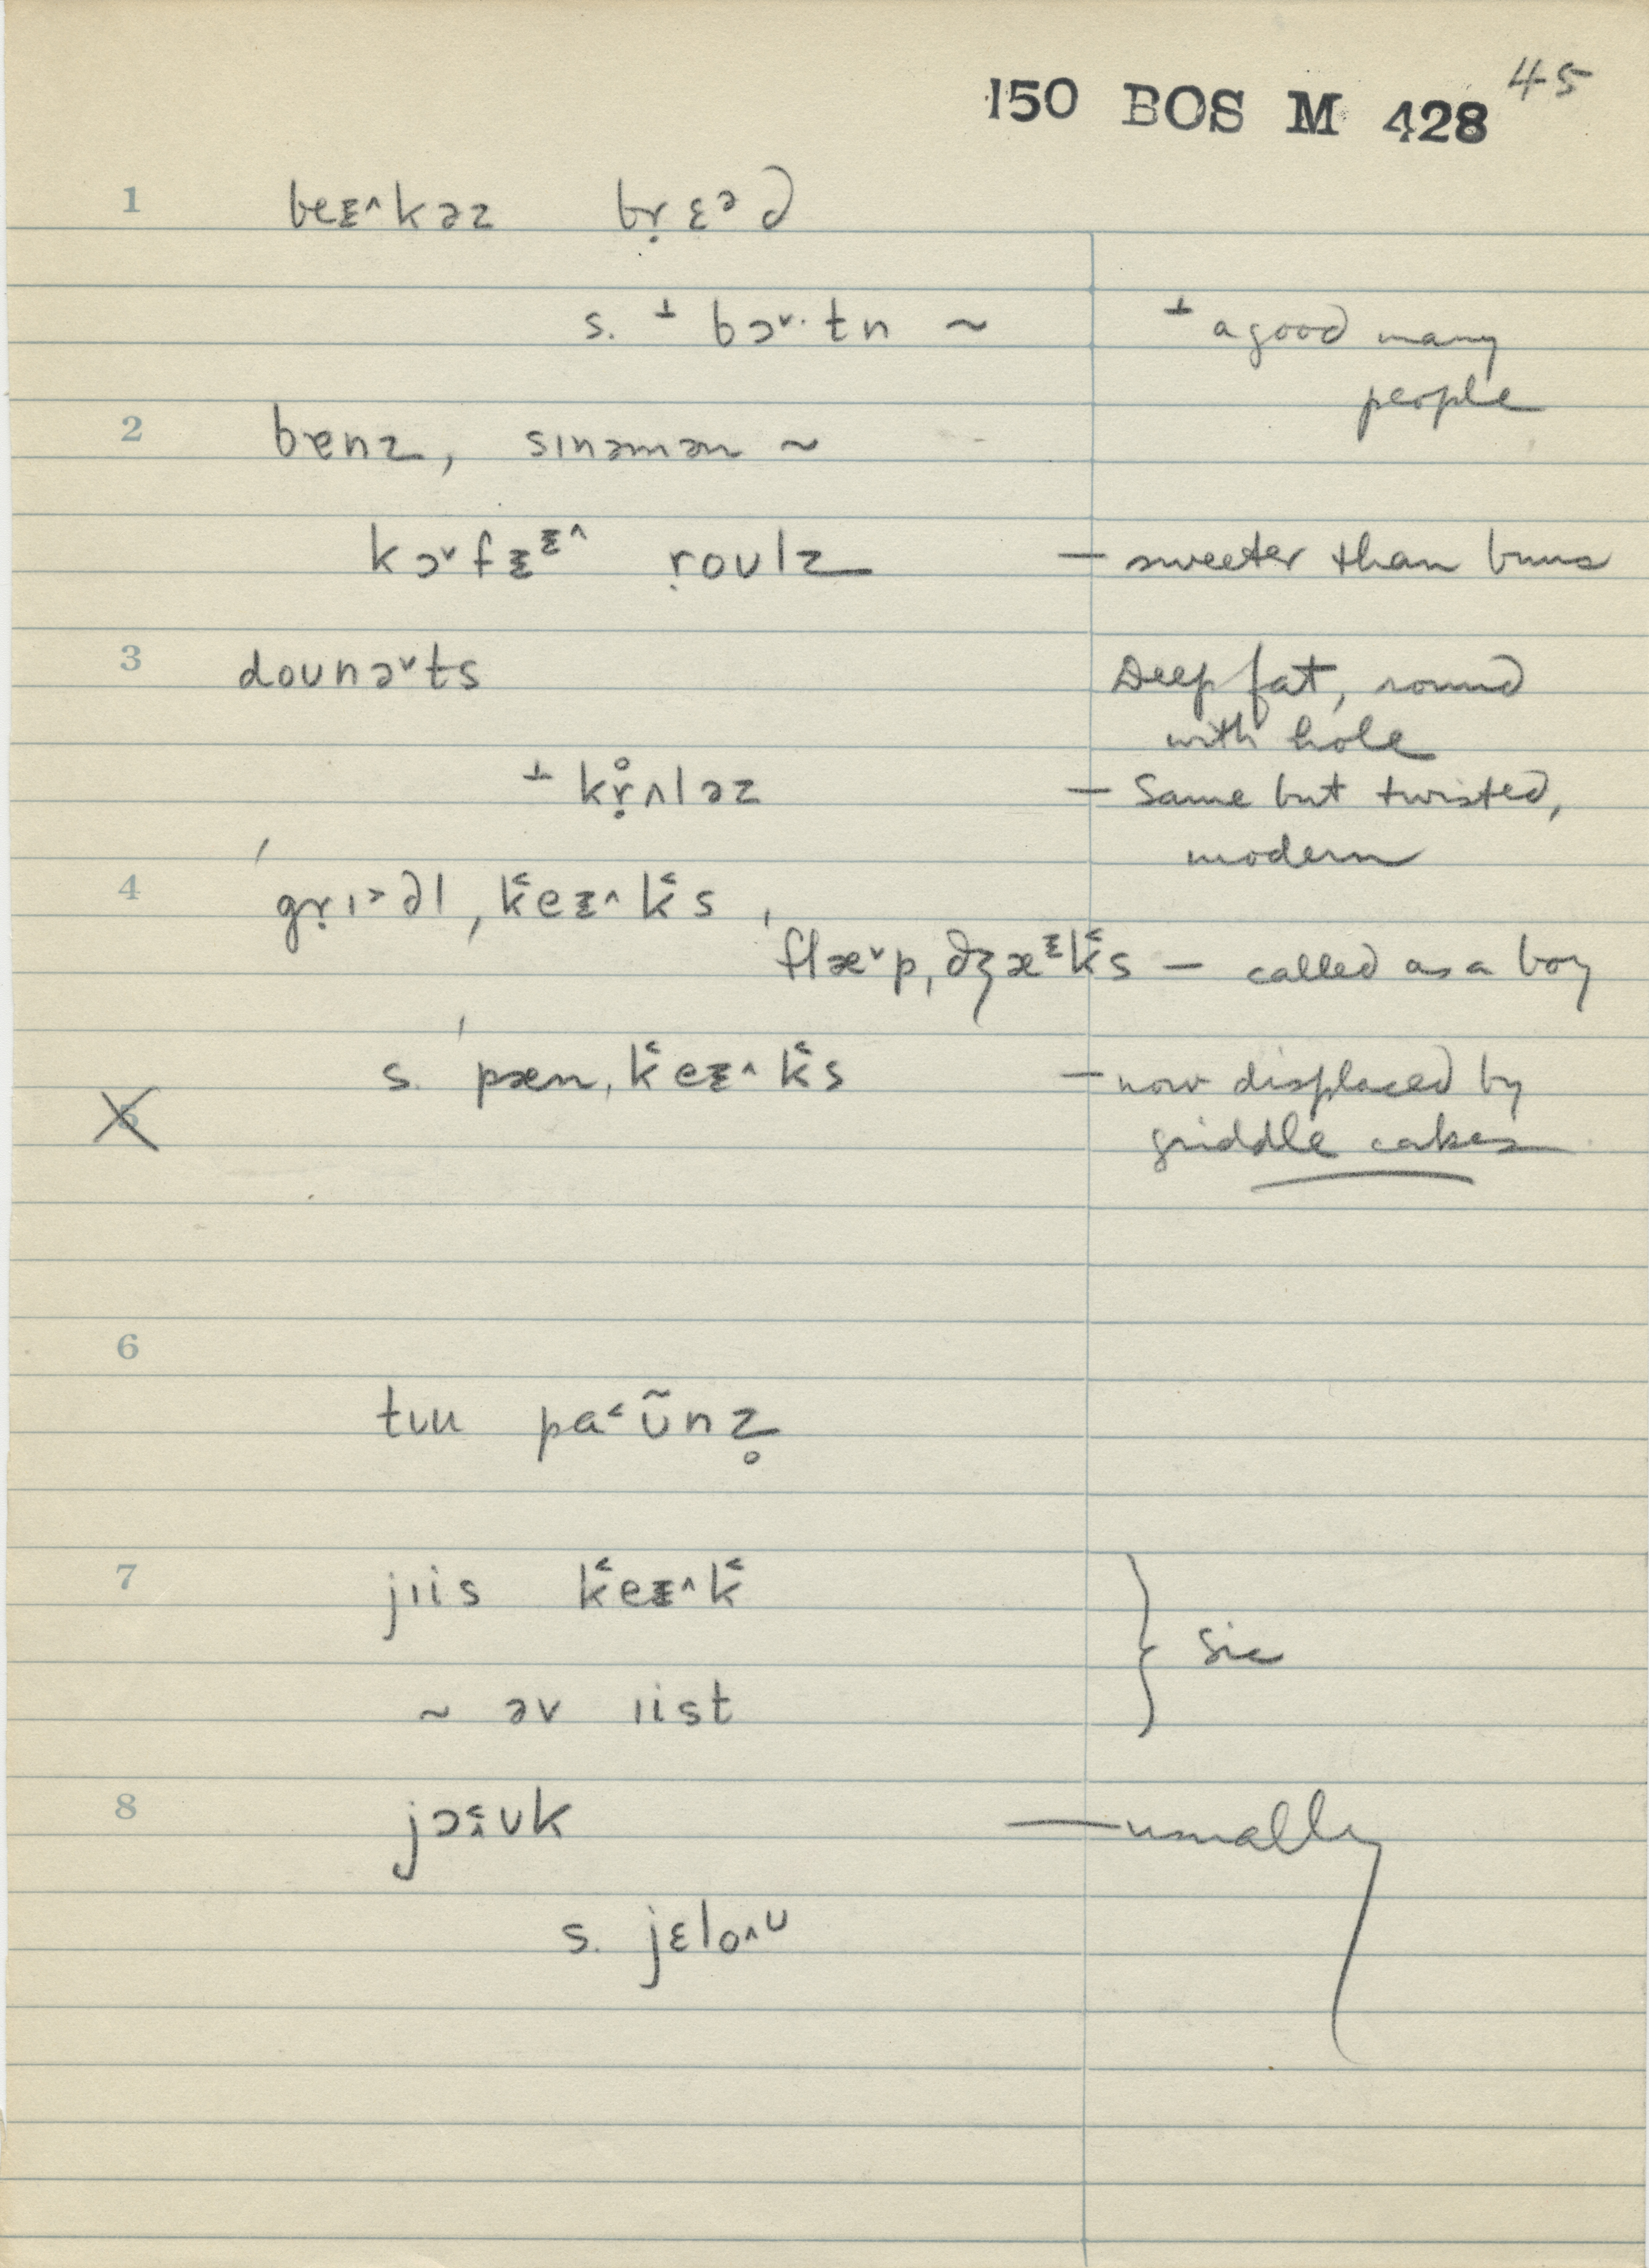 45
150 BOS M 428
1 beᵻ^kəz bṛɛᵊd
s. ⊥ bɔ˅·tn ~ ⊥ a good many
people
2 bɐnz, sɪnəmən ~
kɔ˅fᵻᵻ^ ṛoʊlz — sweeter than buns
3 doʊnə˅ts Deep fat, round
with hole
⊥ kṛ̊ʌləz — Same but twisted,
modern
4 ˈgṛɪ˃dl ˌk̆eᵻ^k̆s ,
flæ˅pˌdʒæᵻk̆s — called as a boy
s. ˈpænˌk̆eᵻ^k̆s — now displaced by
5 griddle cakes
6
tʊu pa˂ʊ̃nz̥
7 jɪis k̆eᵻ^k̆
} sic
~ əv ɪist
8 jɔ˂^ʊk — usually
s. jɛlo^ʊ